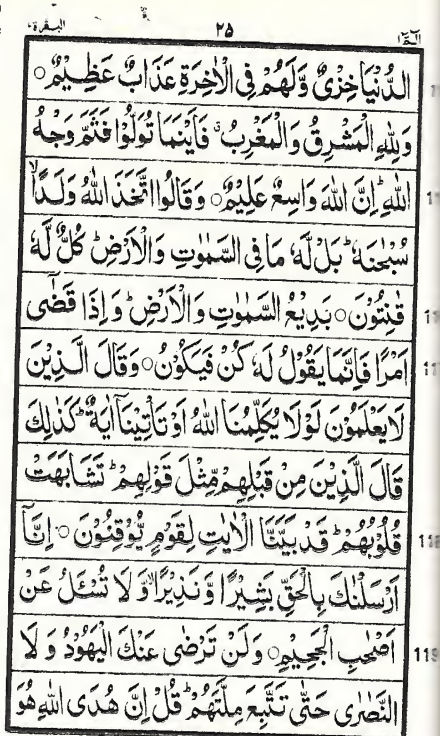 البقرة ٢ ٢٥ الٓمّٓ ١
الدُّنْيَا خِزْىٌ وَّلَهُمْ فِى الْاٰخِرَةِ عَذَابٌ عَظِيْمٌ ○
وَلِلّٰهِ الْمَشْرِقُ وَالْمَغْرِبُ ۗ فَاَيْنَمَا تُوَلُّوْا فَثَمَّ وَجْهُ
اللّٰهِ ؕ اِنَّ اللّٰهَ وَاسِعٌ عَلِيْمٌ ○ وَقَالُوا اتَّخَذَ اللّٰهُ وَلَدًا ۙ
سُبْحٰنَهٗ ؕ بَلْ لَّهٗ مَا فِى السَّمٰوٰتِ وَالْاَرْضِ ؕ كُلٌّ لَّهٗ
قٰنِتُوْنَ ○ بَدِيْعُ السَّمٰوٰتِ وَالْاَرْضِ ؕ وَاِذَا قَضٰٓى
اَمْرًا فَاِنَّمَا يَقُوْلُ لَهٗ كُنْ فَيَكُوْنُ ○ وَقَالَ الَّذِيْنَ
لَا يَعْلَمُوْنَ لَوْلَا يُكَلِّمُنَا اللّٰهُ اَوْ تَاْتِيْنَآ اٰيَةٌ ؕ كَذٰلِكَ
قَالَ الَّذِيْنَ مِنْ قَبْلِهِمْ مِّثْلَ قَوْلِهِمْ ؕ تَشَابَهَتْ
قُلُوْبُهُمْ ؕ قَدْ بَيَّنَّا الْاٰيٰتِ لِقَوْمٍ يُّوْقِنُوْنَ ○ اِنَّآ
118
اَرْسَلْنٰكَ بِالْحَقِّ بَشِيْرًا وَّنَذِيْرًا ۙ وَّلَا تُسْـَٔلُ عَنْ
اَصْحٰبِ الْجَحِيْمِ ○ وَلَنْ تَرْضٰى عَنْكَ الْيَهُوْدُ وَلَا
119
النَّصٰرٰى حَتّٰى تَتَّبِعَ مِلَّتَهُمْ ؕ قُلْ اِنَّ هُدَى اللّٰهِ هُوَ